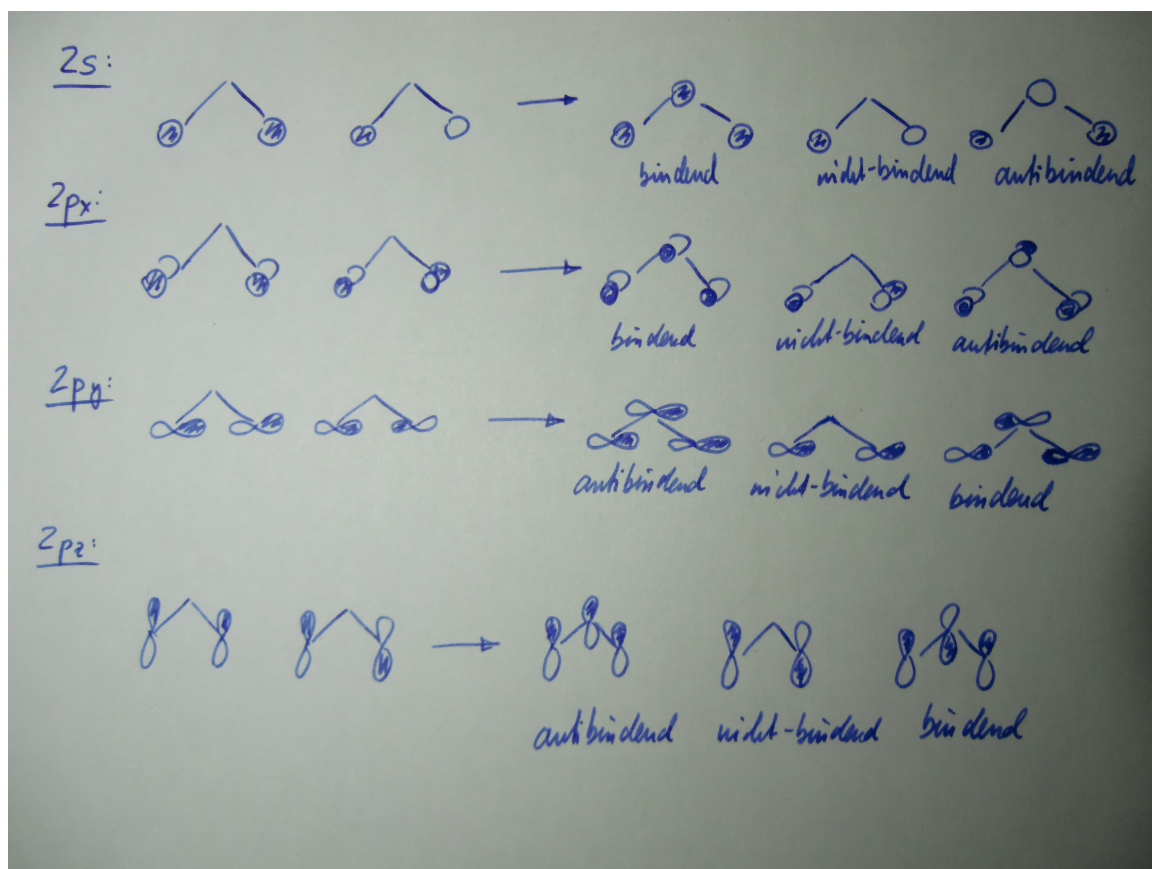 2s:
bindend nicht-bindend antibindend
2px:
bindend nicht-bindend antibindend
2py:
antibindend nicht-bindend bindend
2pz:
antibindend nicht-bindend bindend